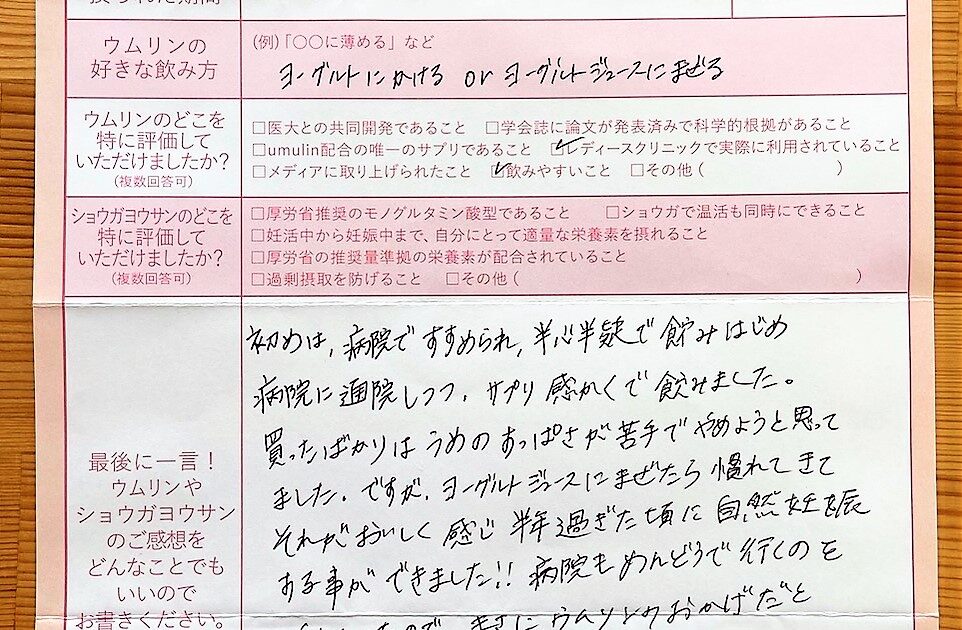 ウムリンの
好きな飲み方
(例)「〇〇に薄める」など
ヨーグルトにかける or ヨーグルトジュースにまぜる
ウムリンのどこを
特に評価して
いただけましたか?
(複数回答可)
□医大との共同開発であること □学会誌に論文が発表済みで科学的根拠があること
□umulin配合の唯一のサプリであること ☑レディースクリニックで実際に利用されていること
□メディアに取り上げられたこと ☑飲みやすいこと □その他( )
ショウガヨウサンのどこを
特に評価して
いただけましたか?
(複数回答可)
□厚労省推奨のモノグルタミン酸型であること □ショウガで温活も同時にできること
□妊活中から妊娠中まで、自分にとって適量な栄養素を摂れること
□厚労省の推奨量準拠の栄養素が配合されていること
□過剰摂取を防げること □その他( )
最後に一言!
ウムリンや
ショウガヨウサン
のご感想を
どんなことでも
いいので
お書きください。
初めは、病院ですすめられ、半心半疑で飲みはじめ
病院に通院しつつ、サプリ感かくで飲みました。
買ったばかりはうめのすっぱさが苦手でやめようと思って
ました。ですが、ヨーグルトジュースにまぜたら慣れてきて
それがおいしく感じ半年過ぎた頃に自然妊娠
する事ができました!!病院もめんどうで行くのを
ウムリンのおかげだと